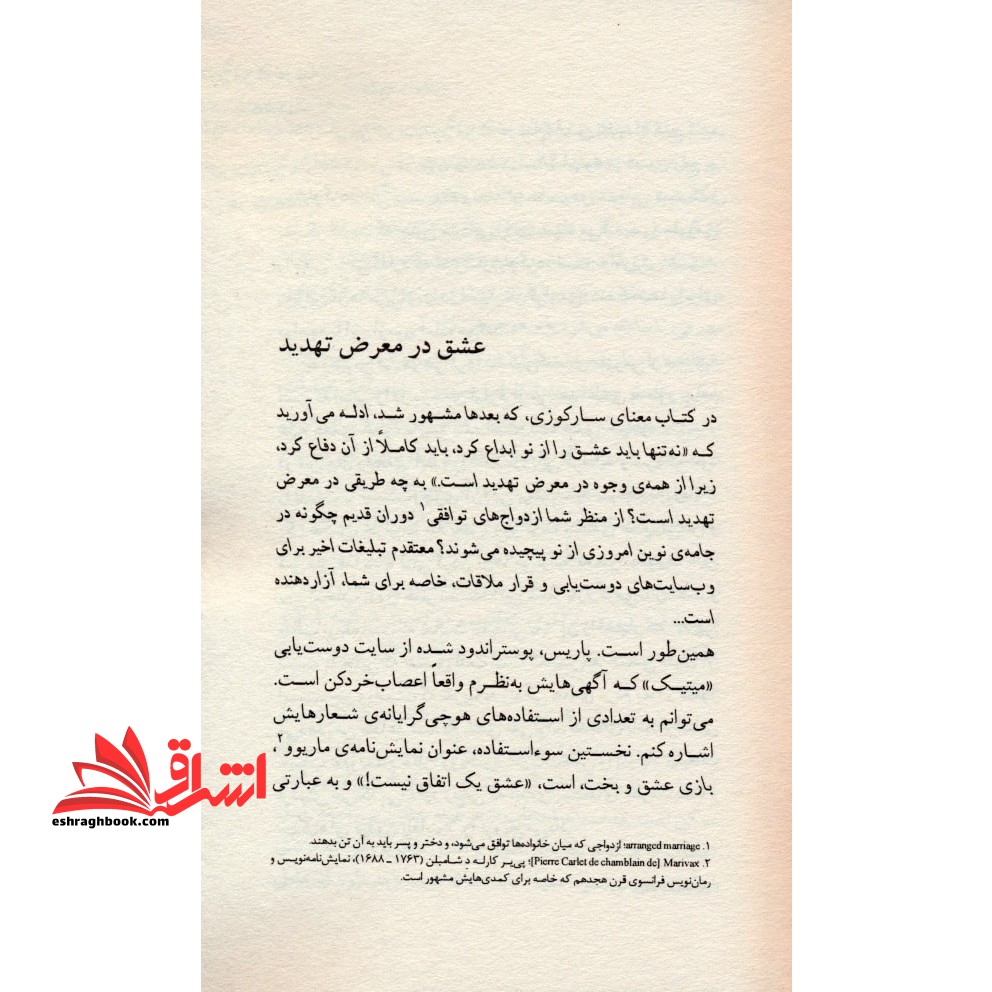 عشق در معرض تهدید
در کتاب معنای سارکوزی، که بعدها مشهور شد، ادله می‌آورید
که «نه‌تنها باید عشق را از نو ابداع کرد، باید کاملاً از آن دفاع کرد،
زیرا از همه‌ی وجوه در معرض تهدید است.» به چه طریقی در معرض
تهدید است؟ از منظر شما ازدواج‌های توافقی۱ دوران قدیم چگونه در
جامه‌ی نوین امروزی از نو پیچیده می‌شوند؟ معتقدم تبلیغات اخیر برای
وب‌سایت‌های دوست‌یابی و قرار ملاقات، خاصه برای شما، آزاردهنده
است...
همین‌طور است. پاریس، پوستراندود شده از سایت دوست‌یابی
«میتیک» که آگهی‌هایش به‌نظرم واقعاً اعصاب‌خردکن است.
می‌توانم به تعدادی از استفاده‌های هوچی‌گرایانه‌ی شعارهایش
اشاره کنم. نخستین سوءاستفاده، عنوان نمایش‌نامه‌ی ماریوو۲،
بازی عشق و بخت، است، «عشق یک اتفاق نیست!» و به عبارتی
۱. arranged marriage؛ ازدواجی که میان خانواده‌ها توافق می‌شود، و دختر و پسر باید به آن تن بدهند.
۲. Marivax [Pierre Carlet de chamblain de]؛ پی‌یر کارله دِ شامبلن (۱۷۶۳ ـ ۱۶۸۸)، نمایش‌نامه‌نویس و
رمان‌نویس فرانسوی قرن هجدهم که خاصه برای کمدی‌هایش مشهور است.
اشراق
eshraghbook.com